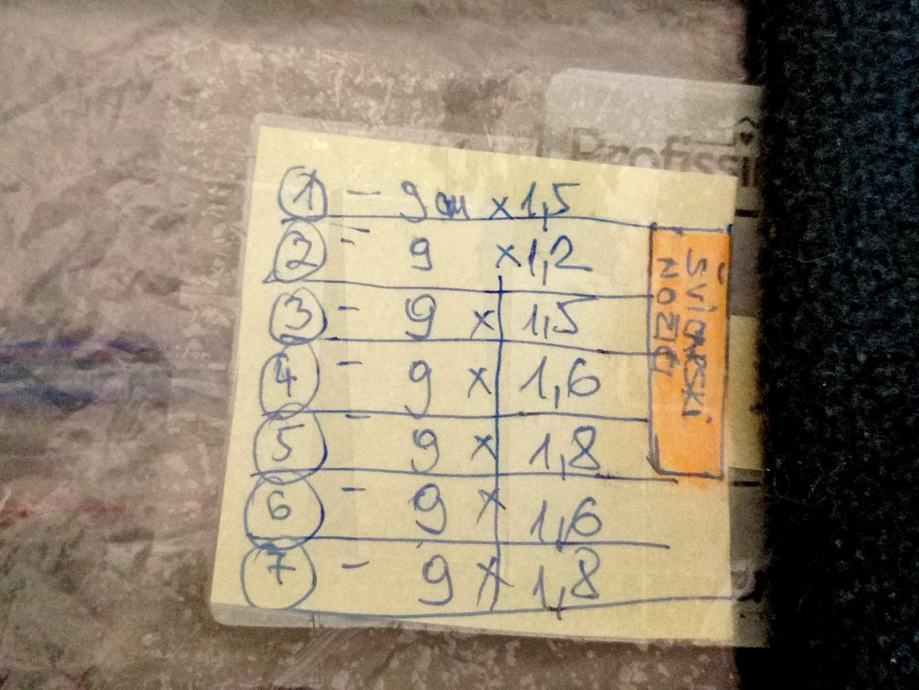 Profissi
1 - 9 cm x 1,5
2 - 9 x 1,2
3 - 9 x 1,5
4 - 9 x 1,6
5 - 9 x 1,8
6 - 9 x 1,6
7 - 9 x 1,8
ŠVICARSKI
NOŽIĆI